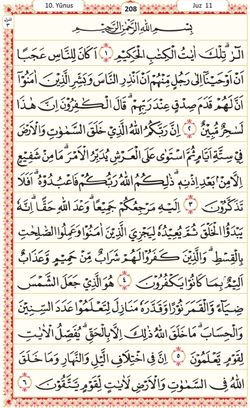 10. Yûnus 208 Juz 11
بِسْمِ اللهِ الرَّحْمٰنِ الرَّحِيْمِ
الۤرٰ ۚ تِلْكَ اٰيٰتُ الْكِتٰبِ الْحَكِيْمِ ١ اَكَانَ لِلنَّاسِ عَجَبًا
اَنْ اَوْحَيْنَآ اِلٰى رَجُلٍ مِّنْهُمْ اَنْ اَنْذِرِ النَّاسَ وَبَشِّرِ الَّذِيْنَ اٰمَنُوْٓا
اَنَّ لَهُمْ قَدَمَ صِدْقٍ عِنْدَ رَبِّهِمْ ۗ قَالَ الْكٰفِرُوْنَ اِنَّ هٰذَا
لَسٰحِرٌ مُّبِيْنٌ ٢ اِنَّ رَبَّكُمُ اللّٰهُ الَّذِيْ خَلَقَ السَّمٰوٰتِ وَالْاَرْضَ
فِيْ سِتَّةِ اَيَّامٍ ثُمَّ اسْتَوٰى عَلَى الْعَرْشِ يُدَبِّرُ الْاَمْرَ ۗ مَا مِنْ شَفِيْعٍ
اِلَّا مِنْۢ بَعْدِ اِذْنِهٖ ۗ ذٰلِكُمُ اللّٰهُ رَبُّكُمْ فَاعْبُدُوْهُ ۗ اَفَلَا
تَذَكَّرُوْنَ ٣ اِلَيْهِ مَرْجِعُكُمْ جَمِيْعًا ۗ وَعْدَ اللّٰهِ حَقًّا ۗ اِنَّهٗ
يَبْدَؤُا الْخَلْقَ ثُمَّ يُعِيْدُهٗ لِيَجْزِيَ الَّذِيْنَ اٰمَنُوْا وَعَمِلُوا الصّٰلِحٰتِ
بِالْقِسْطِ ۗ وَالَّذِيْنَ كَفَرُوْا لَهُمْ شَرَابٌ مِّنْ حَمِيْمٍ وَّعَذَابٌ
اَلِيْمٌۢ بِمَا كَانُوْا يَكْفُرُوْنَ ٤ هُوَ الَّذِيْ جَعَلَ الشَّمْسَ
ضِيَاۤءً وَّالْقَمَرَ نُوْرًا وَّقَدَّرَهٗ مَنَازِلَ لِتَعْلَمُوْا عَدَدَ السِّنِيْنَ
وَالْحِسَابَ ۗ مَا خَلَقَ اللّٰهُ ذٰلِكَ اِلَّا بِالْحَقِّ ۚ يُفَصِّلُ الْاٰيٰتِ
لِقَوْمٍ يَّعْلَمُوْنَ ٥ اِنَّ فِى اخْتِلَافِ الَّيْلِ وَالنَّهَارِ وَمَا خَلَقَ
اللّٰهُ فِى السَّمٰوٰتِ وَالْاَرْضِ لَاٰيٰتٍ لِّقَوْمٍ يَّتَّقُوْنَ ٦